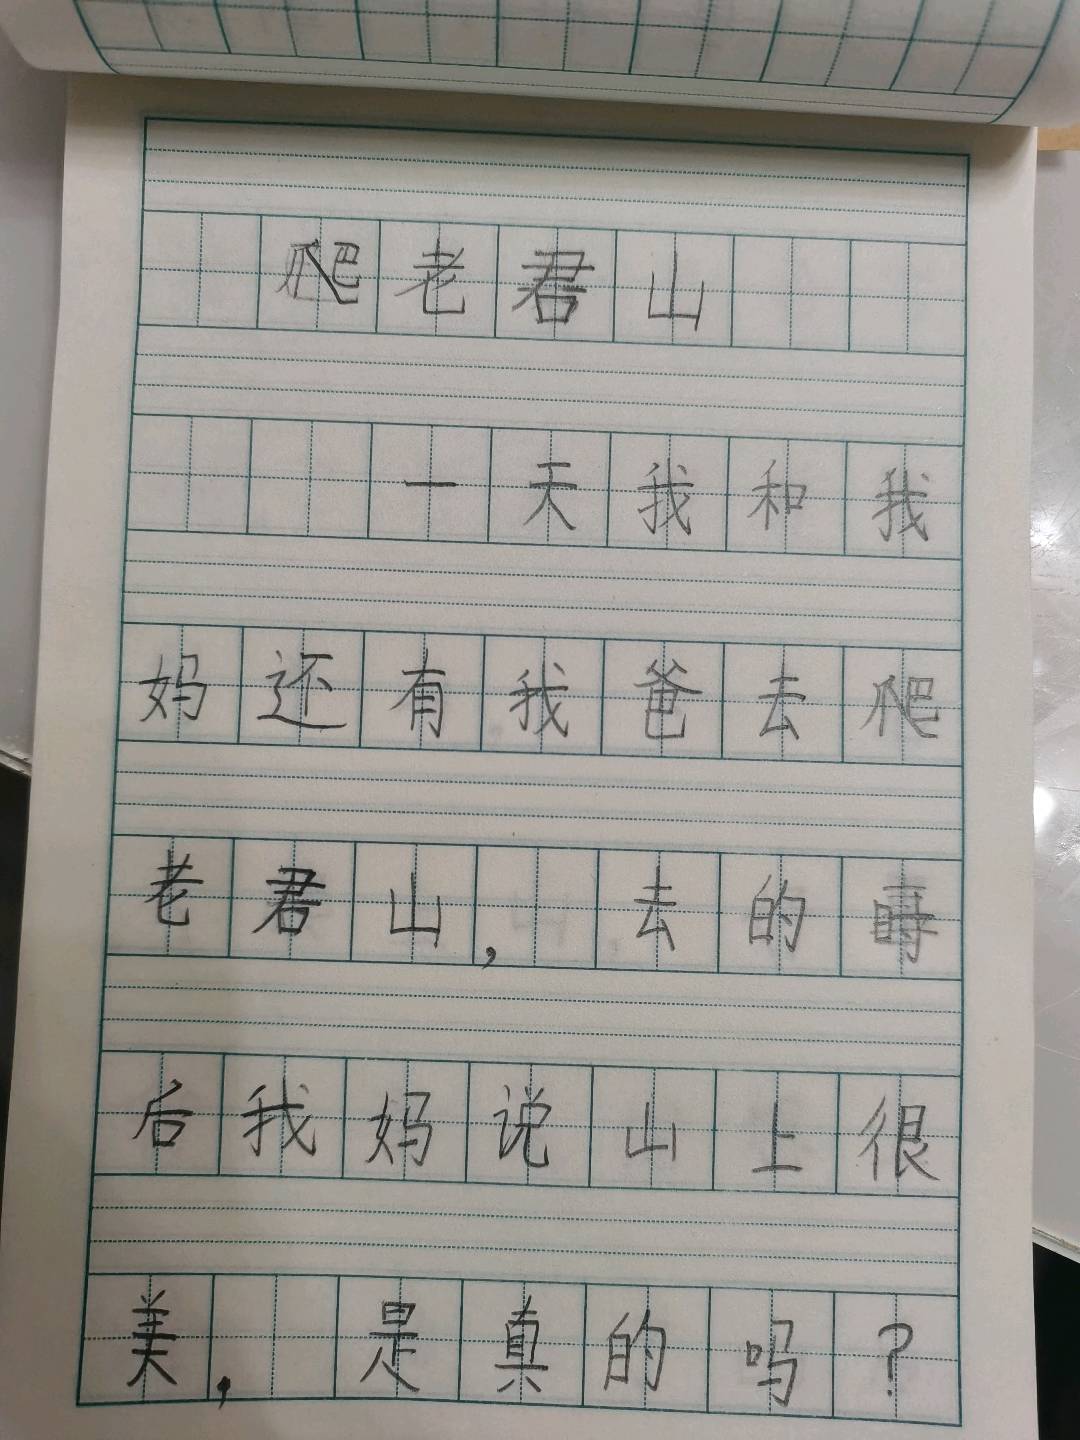 爬老君山
一天我和我
妈还有我爸去爬
老君山,去的
后我妈说山上很
美,是真的吗?